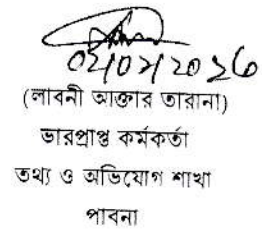 02/02/2026
(লাবনী আক্তার তারানা)
ভারপ্রাপ্ত কর্মকর্তা
তথ্য ও অভিযোগ শাখা
পাবনা